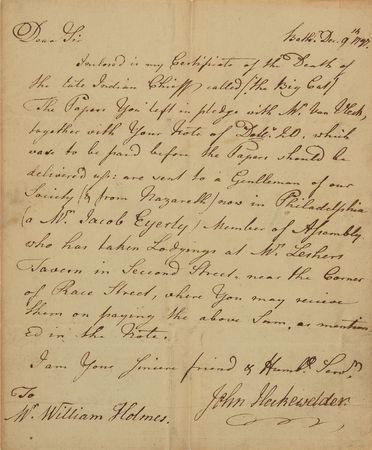 Bethm. Dec. 9th 1797.
Dear Sir
Inclosed is my Certificate of the Death of
the late Indian Chieff, called (the Big Cat)
The Papers You left in pledge with Mr. Van Vleck,
together with Your Note of Dollrs. 20. which
was to be paid before the Papers should be
delivered up: are sent to a Gentleman of our
Society (& from Nazareth) now in Philadelphia
(a Mr. Jacob Eyerly) Member of Assembly
who has taken Lodgings at Mr. Leshers
Tavern in Second Street near the Corner
of Race Street, where You may receive
them on paying the above Sum, as mention
ed in the Note.
I am Your Sincere friend & Humbl. Servt.
John Heckewelder.
To
Mr. William Holmes.